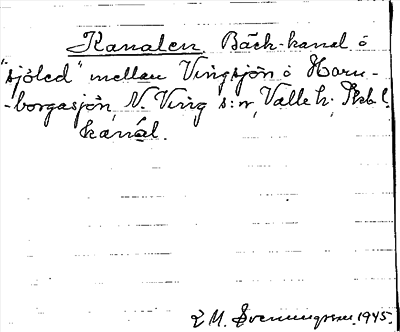 Kanalen. Bäck-kanal o
"sjöled" mellan Vingsjön o Horn-
-borgasjön, N. Ving s:n, Valle h. Skb. l.
kanál.
E M. Svenningsson. 1945.